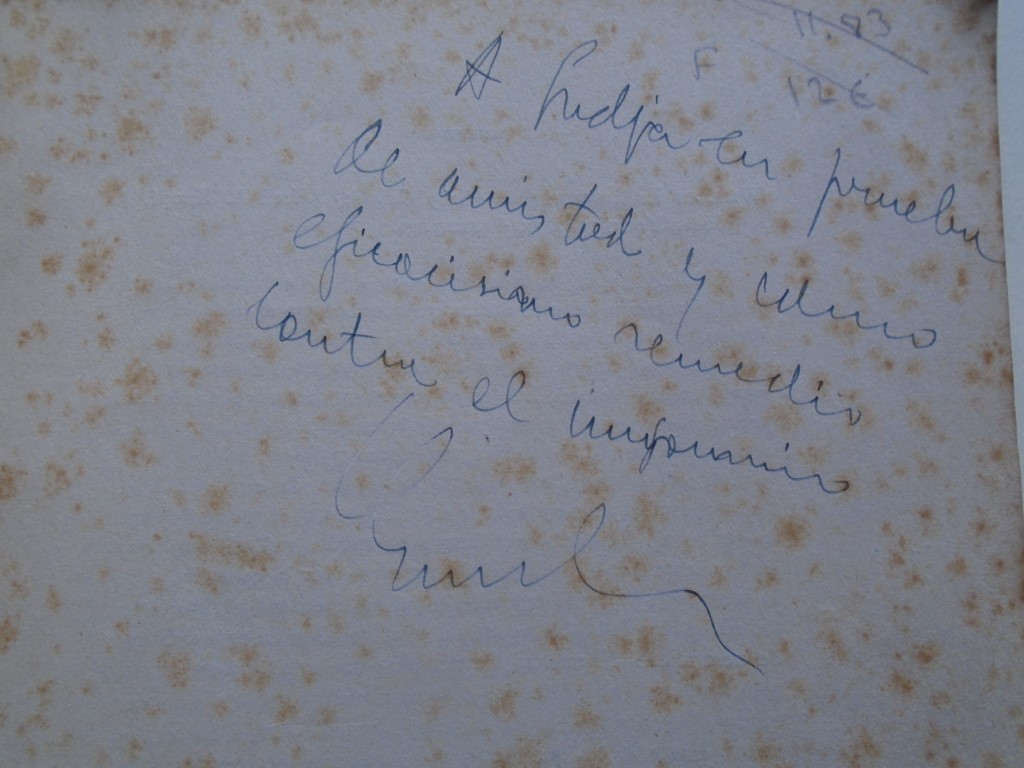 11.93
F 12€
A Gudja en prueba
de amistad y como
eficacisimo remedio
contra el insomnio